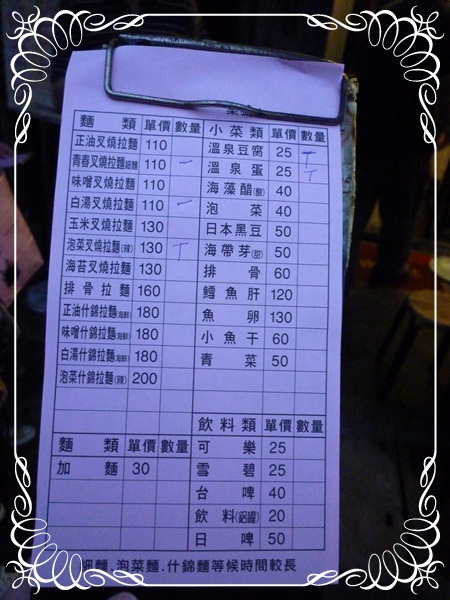 麵類 單價 數量 小菜類 單價 數量
正油叉燒拉麵 110 溫泉豆腐 25 T
青春叉燒拉麵細麵 110 一 溫泉蛋 25 T
味噌叉燒拉麵 110 海藻醋(酸) 40
白湯叉燒拉麵 110 一 泡菜 40
玉米叉燒拉麵 130 日本黑豆 50
泡菜叉燒拉麵(辣) 130 T 海帶芽(甜) 50
海苔叉燒拉麵 130 排骨 60
排骨拉麵 160 鱈魚肝 120
正油什錦拉麵(海鮮) 180 魚卵 130
味噌什錦拉麵(海鮮) 180 小魚干 60
白湯什錦拉麵(海鮮) 180 青菜 50
泡菜什錦拉麵(辣) 200
飲料類 單價 數量
麵類 單價 數量 可樂 25
加麵 30 雪碧 25
台啤 40
飲料(鋁罐) 20
日啤 50
細麵.泡菜麵.什錦麵等候時間較長